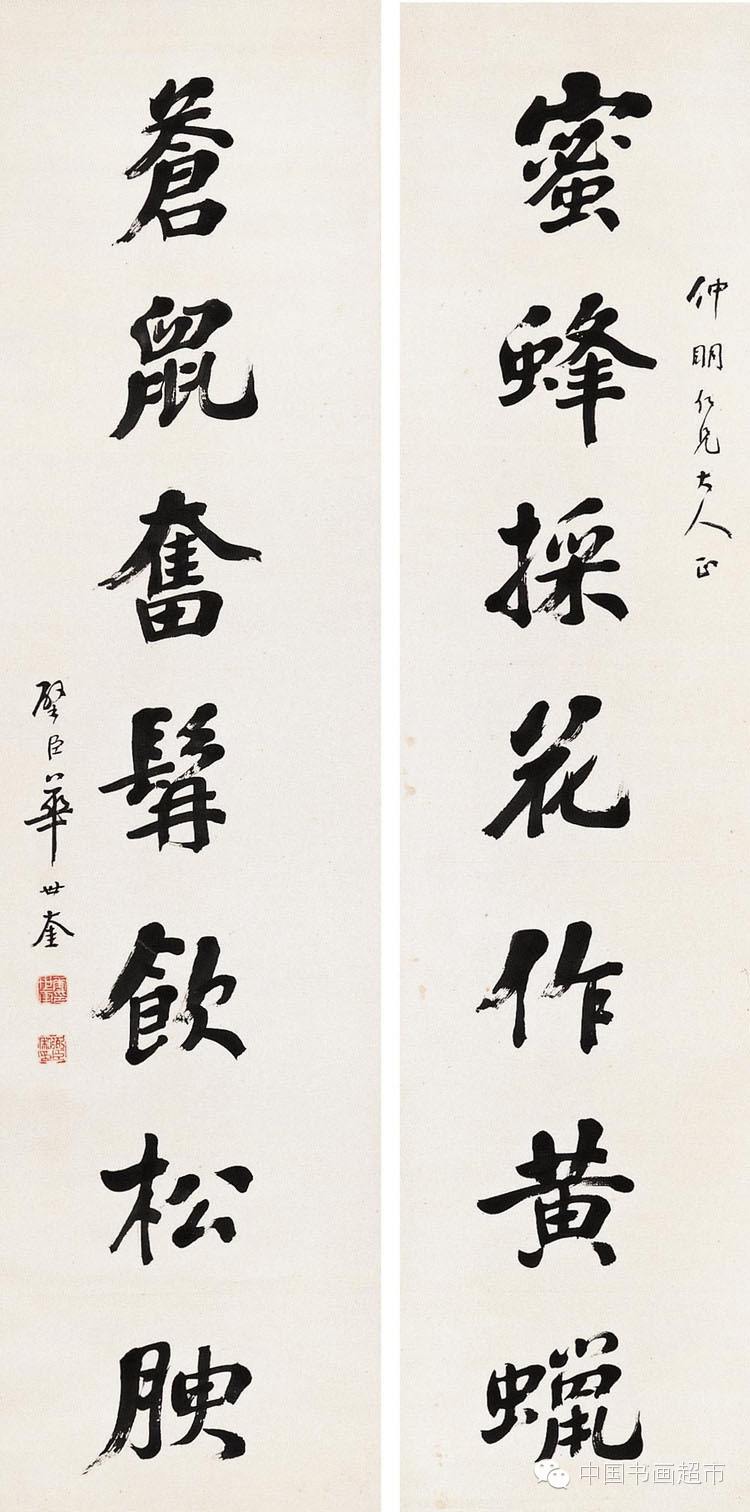 仲明仁兄大人正
蜜蜂採花作黄蠟
蒼鼠奮髯飲松腴
璧臣華世奎
中国书画超市